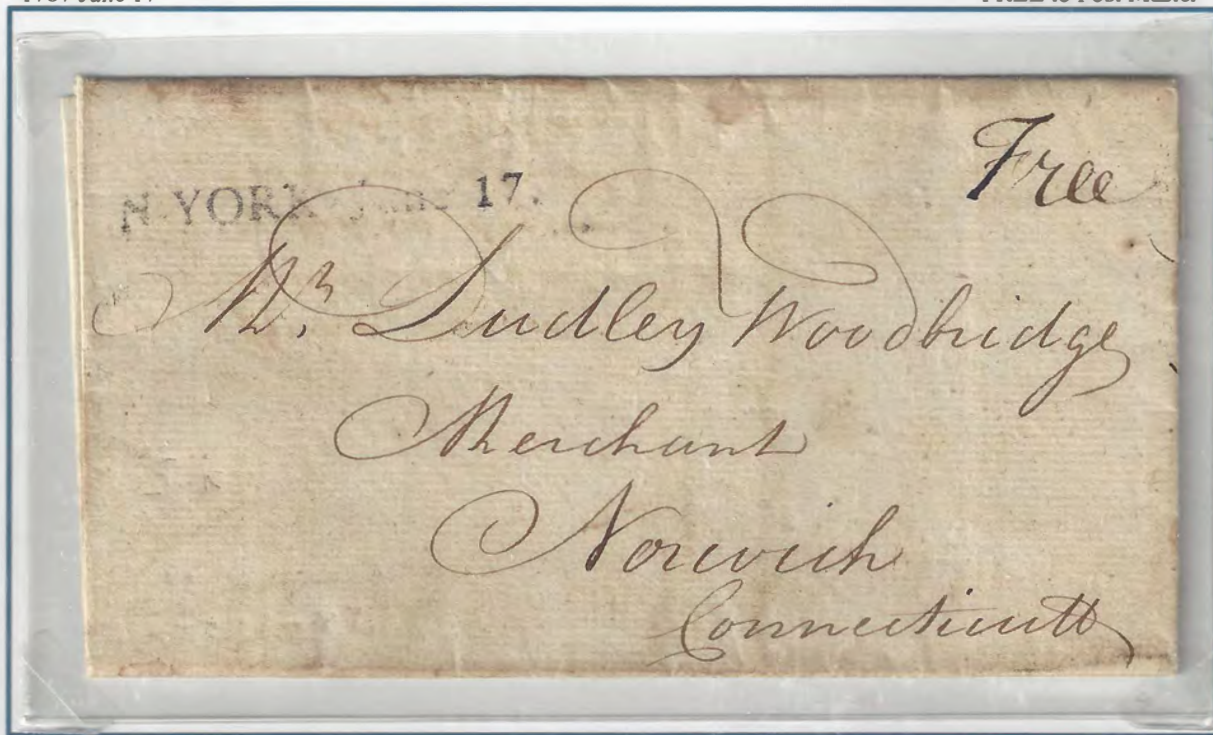 Free
N-YORK June 17.
Mr. Dudley Woodbridge
Merchant
Norwich
Connecticutt